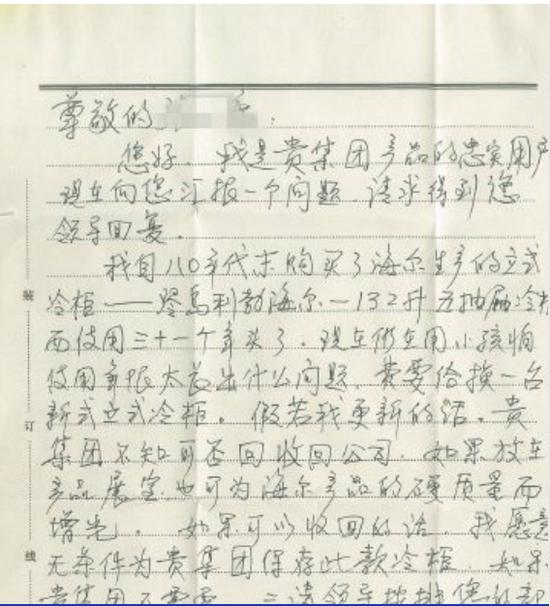 尊敬的
您好. 我是贵集团产品的忠实用户
现在向您汇报一个问题. 请求得到您
领导回复.
我自八0年代末购买了海尔生产的立式
冷柜——琴岛利勃海尔.—132升 抽屉冷柜
而使用三十一个年头了. 现在仍在用.小孩怕
使用年限太长出什么问题. 要给换一台
新式立式冷柜. 假若我更新的话. 贵
集团不知可否回收回公司. 如果放在
产品展室也可为海尔产品的硬质量而
增光. 如果可以收回的话. 我愿意
无条件为贵集团保存此款冷柜. 如果
贵集团不需要. 请领导 您的部
装
订
线